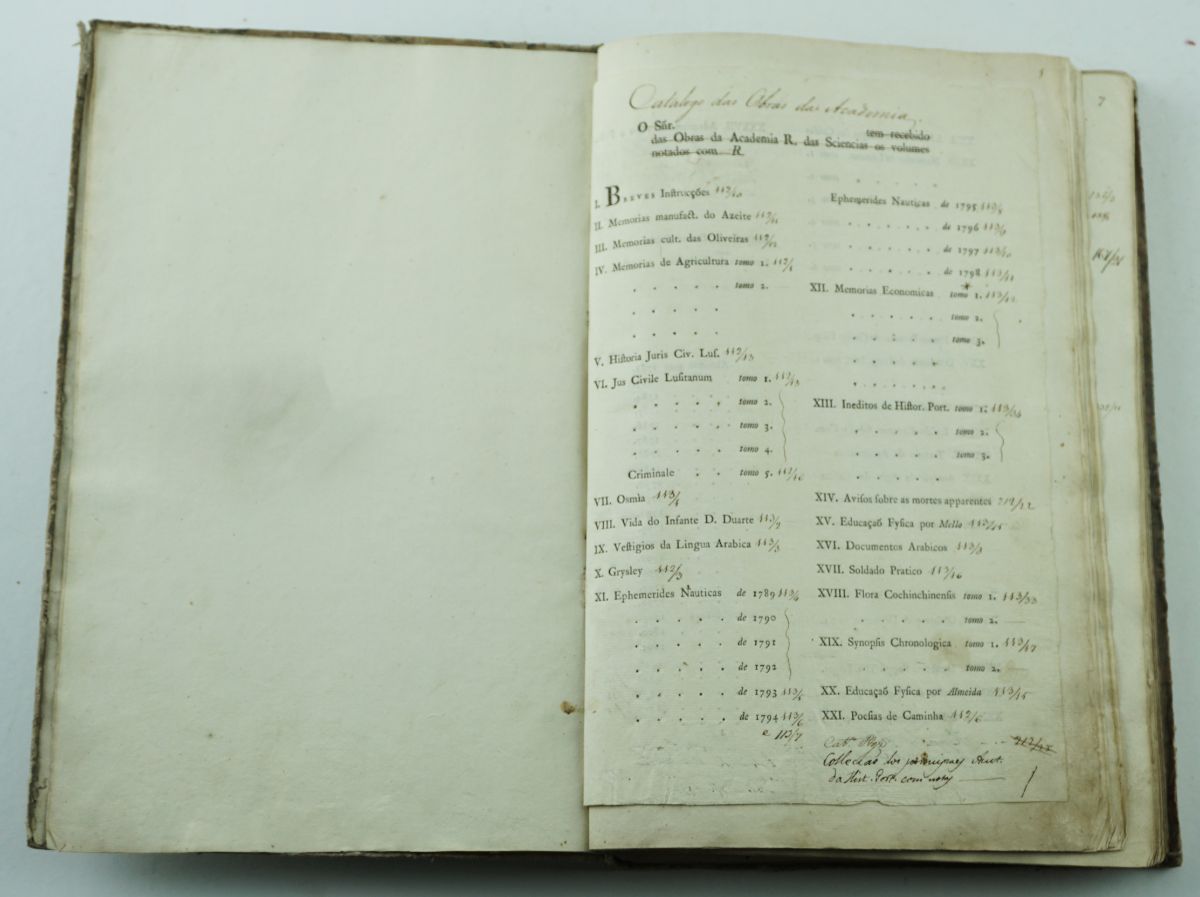 1
Catalogo das Obras da Academia.
O Sñr. tem recebido
das Obras da Academia R. das Sciencias os volumes
notados com R
I. BREVES Inſtrucções 112/10
II. Memorias manufact. do Azeite 112/11
III. Memorias cult. das Oliveiras 112/12
IV. Memorias de Agricultura tomo 1.
. . . . . tomo 2.
. . . . .
. . . . .
V. Hiſtoria Juris Civ. Luſ. 112/13
VI. Jus Civile Luſitanum tomo 1.
. . . . . tomo 2.
. . . . . tomo 3.
. . . . . tomo 4.
Criminale . . tomo 5.
VII. Osmia
VIII. Vida do Infante D. Duarte
IX. Veſtigios da Lingua Arabica 113/3
X. Gryſley 112/3
XI. Ephemerides Nauticas de 1789
. . . . . de 1790
. . . . . de 1791
. . . . . de 1792
. . . . . de 1793
. . . . . de 1794 113/6
e 113/7
Ephemerides Nauticas de 1795 113/8
. . . . . . de 1796 113/9
. . . . . . de 1797 113/10
. . . . . . de 1798 113/11
XII. Memorias Economicas tomo 1. 113/12
. . . . . . tomo 2.
. . . . . . tomo 3.
. . . . . .
. . . . . .
XIII. Ineditos de Hiſtor. Port. tomo 1.
. . . . . tomo 2.
. . . . . tomo 3.
. . . . .
XIV. Aviſos ſobre as mortes apparentes 212/22
XV. Educaçaõ Fyſica por Mello
XVI. Documentos Arabicos 113/3
XVII. Soldado Pratico 113/16
XVIII. Flora Cochinchinenſis tomo 1. 113/33
. . . . . tomo 2.
XIX. Synopſis Chronologica tomo 1. 113/17
. . . . . tomo 2.
XX. Educaçaõ Fyſica por Almeida 113/15
XXI. Poeſias de Caminha 112/6
Collecçaõ dos principaes Aut.
da Hist. Port. com notas
7